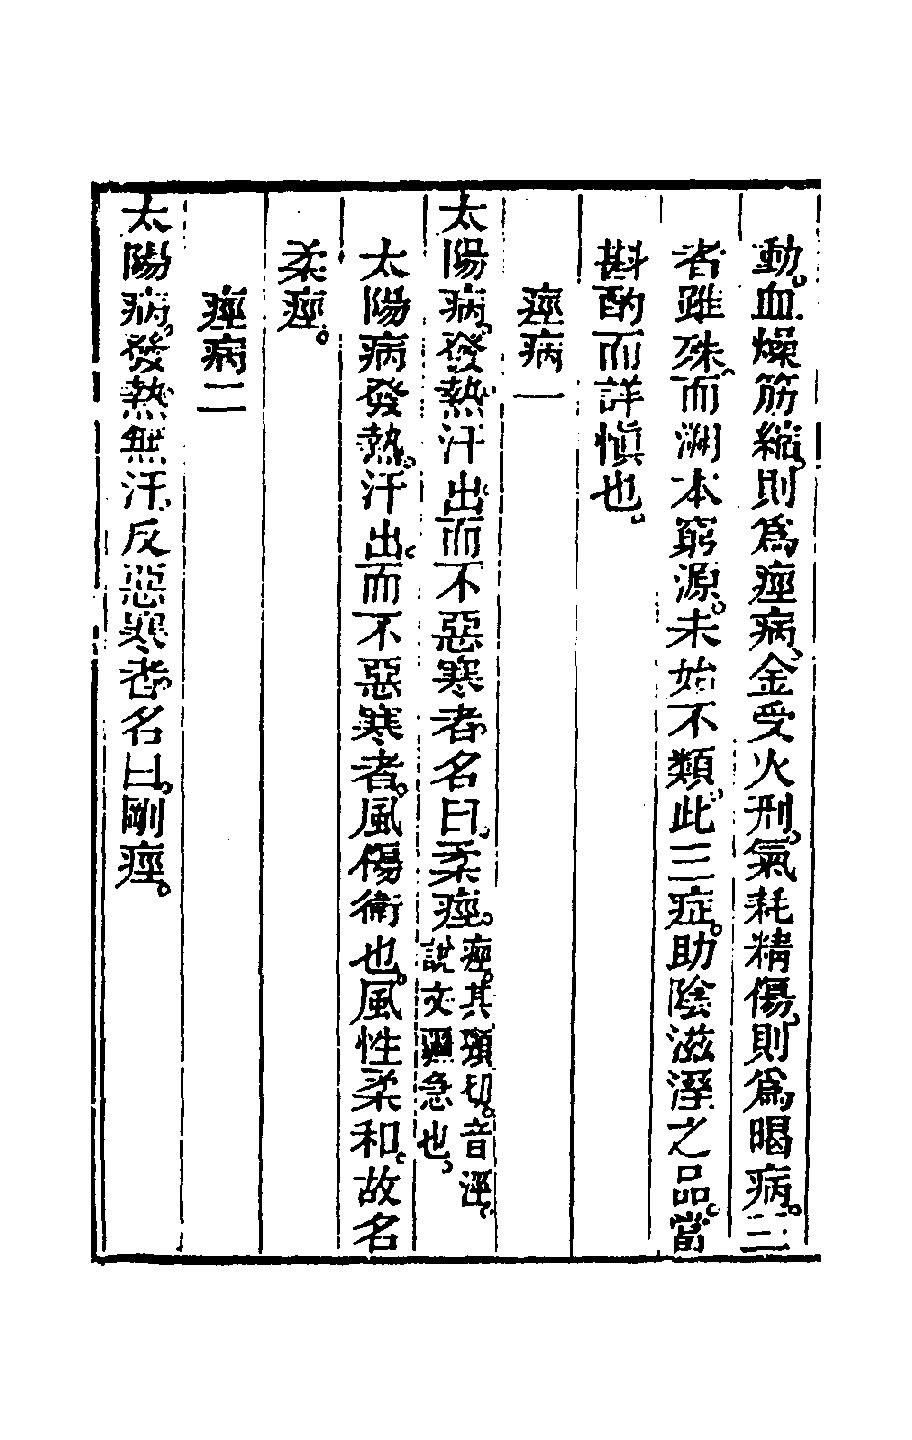 動。血燥筋縮。則爲痙病、金受火刑。氣耗精傷。則爲暍病。三
者雖殊、而溯本窮源。未始不類。此三症。助陰滋溼之品。當
斟酌而詳愼也。
痙病一
太陽病。發熱汗出而不惡寒者名曰。柔痙。痙。其頸切。音溼。
說文彊急也。
太陽病發熱。汗出。而不惡寒者。風傷衛也。風性柔和。故名
柔痙。
痙病二
太陽病。發熱無汗。反惡寒者。名曰。剛痙。